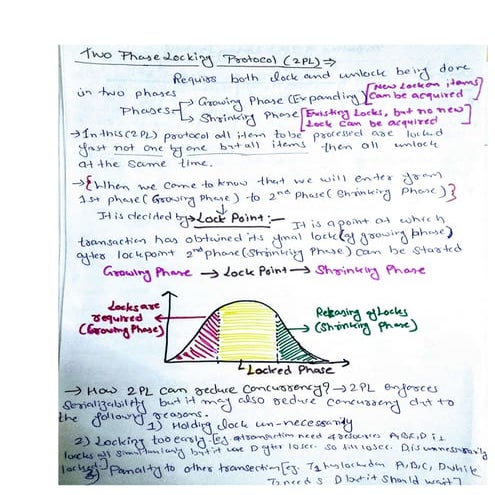 Two Phase Locking Protocol (2PL) ⇒
Requires both lock and unlock being done
in two phases
Phases → Growing Phase (Expanding) [New Lock on items can be acquired]
→ Shrinking Phase [Existing Locks, but no new Lock can be acquired]
→ In this (2PL) protocol all item to be processed are locked
fast not one by one but all items then all unlock
at the same time.
→ {When we came to know that we will enter from
1st phase (Growing Phase) - to 2nd Phase (Shrinking Phase)}
It is decided by → Lock Point :— It is a point at which
transaction has obtained its final lock (of growing phase)
after lock point 2nd phase (Shrinking Phase) can be started
Growing Phase → Lock Point → Shrinking Phase
Locks are
required
(Growing Phase)
Releasing of Locks
(Shrinking Phase)
Locked Phase
→ How 2PL can reduce concurrency? → 2PL enforces
serializability but it may also reduce concurrency due to
the following reasons.
1) Holding lock un-necessarily
2) Locking too early [eg a transaction need 4 resources A, B, C, D it
locks all simultaneously but it use D after
D is unnecessarily
locked]
3) Panality to other transaction [eg. T1 has locked on A, B, C, D while
T2 needs D but it should wait]